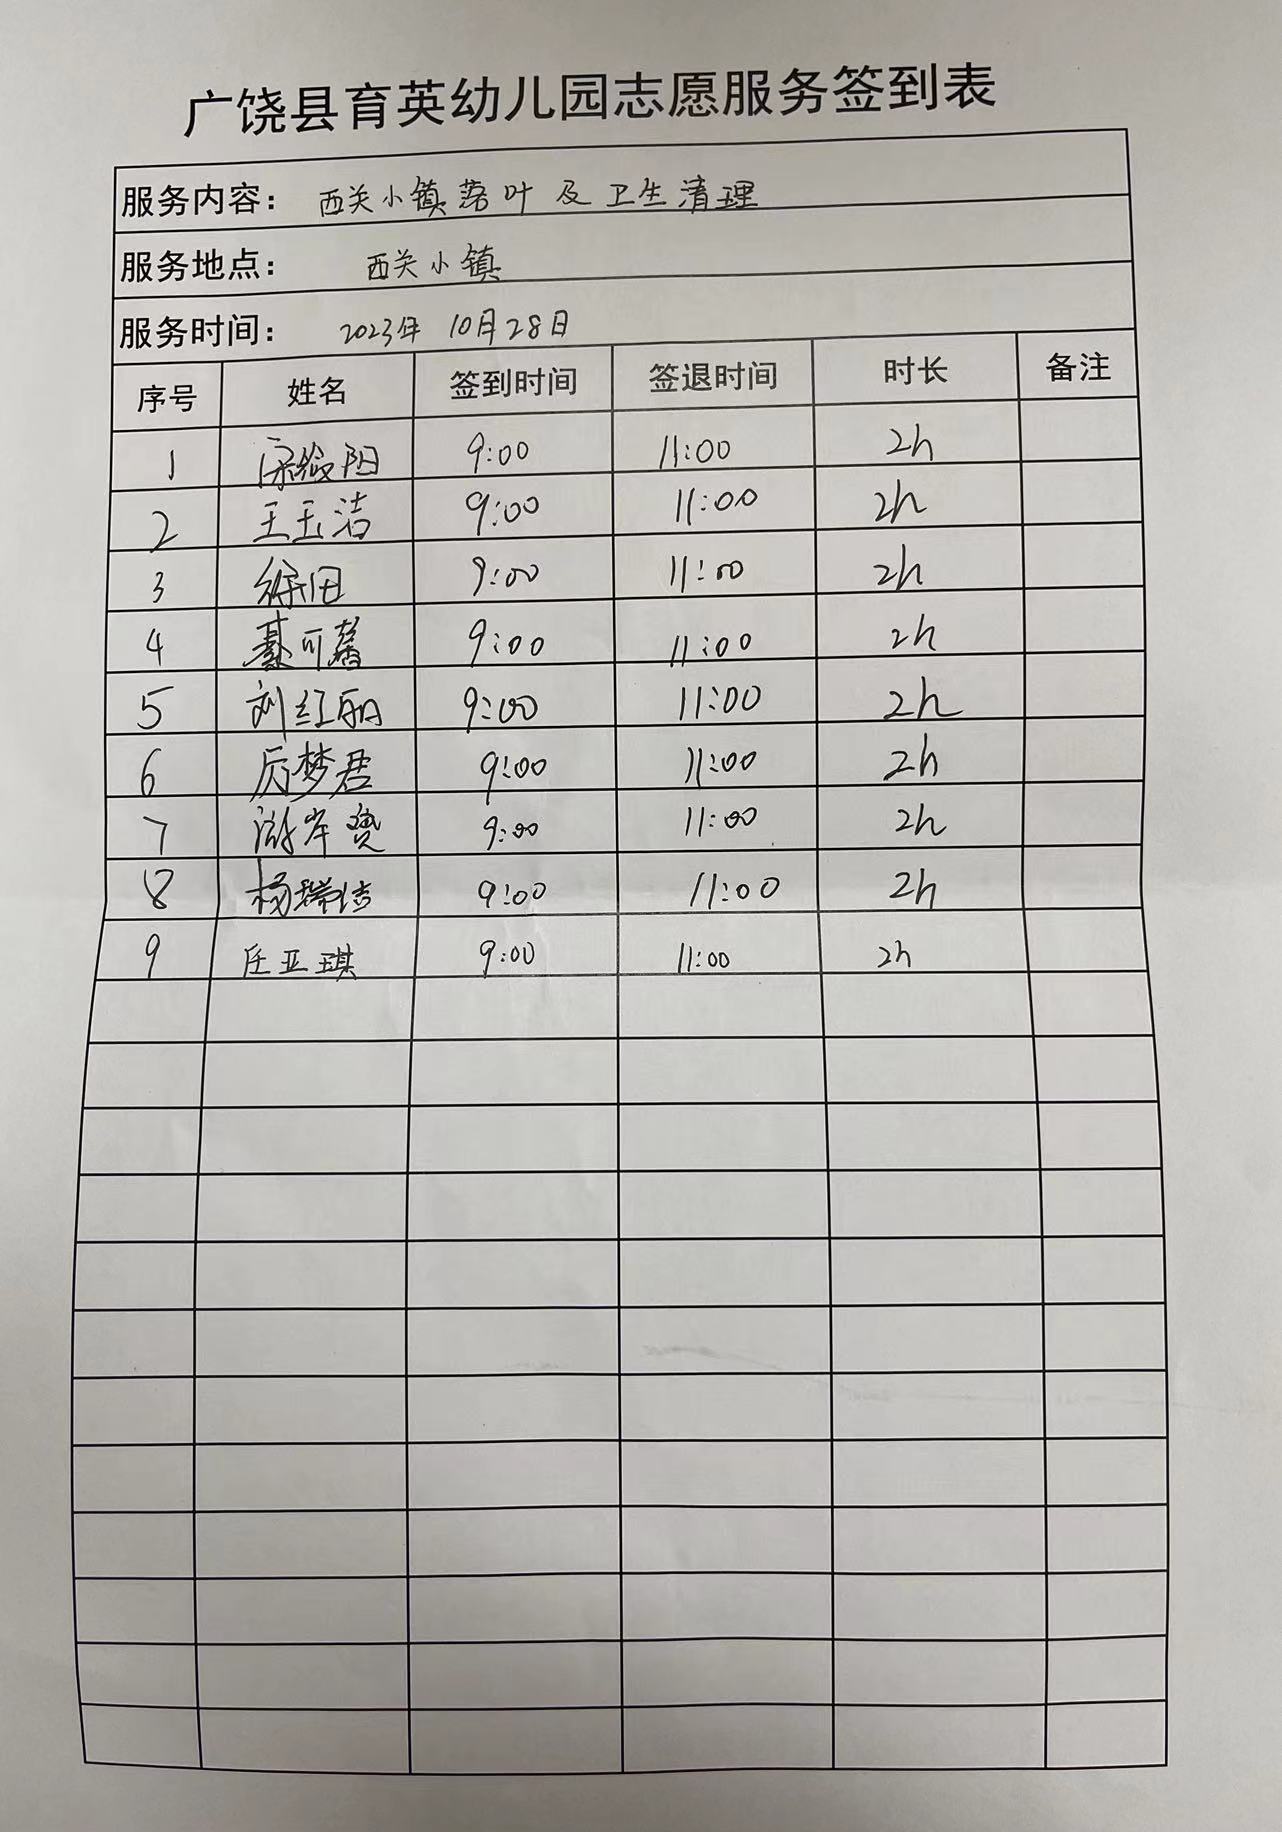 广饶县育英幼儿园志愿服务签到表
服务内容： 西关小镇落叶及卫生清理
服务地点： 西关小镇
服务时间： 2023年 10月28日
序号 姓名 签到时间 签退时间 时长 备注
1 9:00 11:00 2h
2 王玉洁 9:00 11:00 2h
3 徐田 9:00 11:00 2h
4 綦可馨 9:00 11:00 2h
5 刘红丽 9:00 11:00 2h
6 梦君 9:00 11:00 2h
7 9:00 11:00 2h
8 杨瑞洁 9:00 11:00 2h
9 任亚琪 9:00 11:00 2h